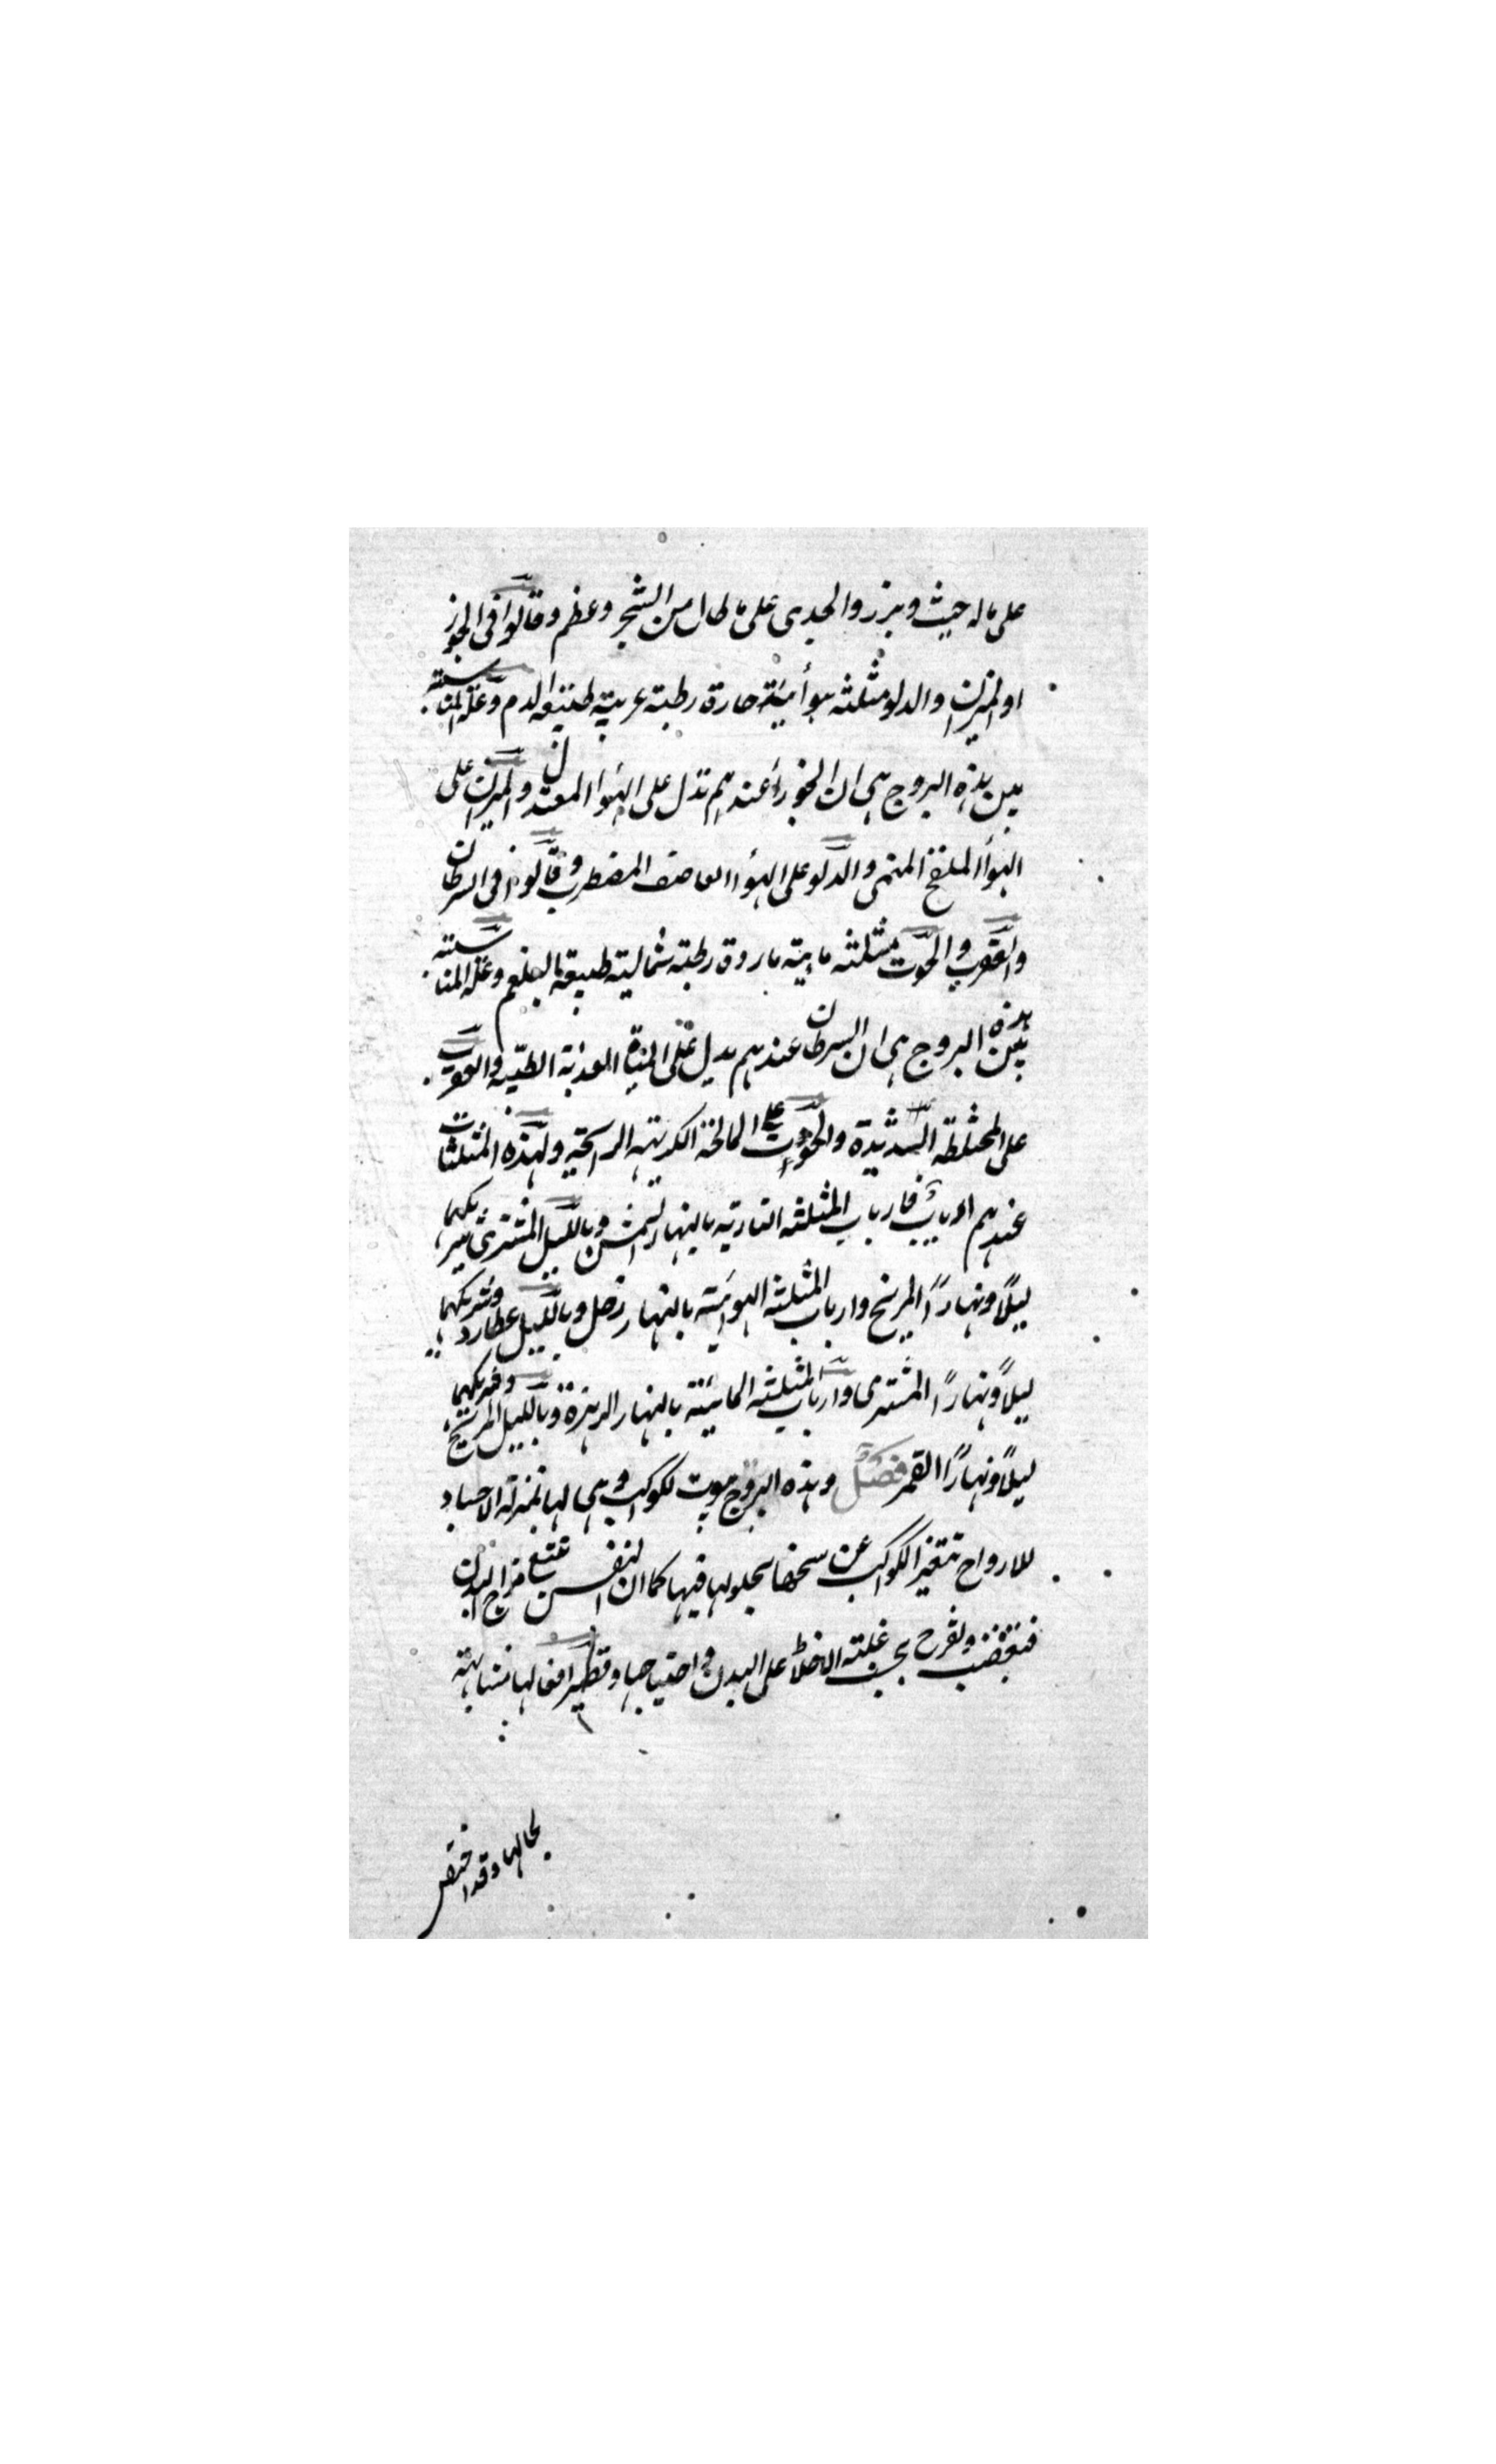 على ماله حيث وبزر والجدى على ما طال من الشجر وعظم وقالوا فى الجوز
او الميزان والدلو مثلثه هوأيئة حارة رطبة غربية طبيعة الدم وعلة المناسبة
بين هذه البروج هى ان الجوزاء عندهم تدل على الهوا المعتدل والميزان على
الهوأ الملقح المنمى والدلو على الهوأ العاصف المضطرب وقالوا فى السرطان
والعقرب والحوت مثلثه مايية باردة رطبة شمالية طبيعة البلغم وعلة المناسبة
بين هذه البروج هى ان السرطان عندهم يدل على المياة العذبة الطيبه والعقرب
على المختلطة الشديدة والحوت على المالحة الكريهه الرائحة ولهذه المثلثات
عندهم ارباب فارباب المثلثه النارية بالنهار الشمس وبالليل المشترى شريكهما
ليلاً ونهاراً المريخ وارباب المثلثه الهوائية بالنهار زحل وبالليل عطارد وشريكهما
ليلاً ونهاراً المشترى وارباب المثلثه المائية بالنهار الزهرة وبالليل المريخ وشريكهما
ليلاً ونهاراً القمر فصل وهذه البروج بيوت لكوكب وهى لها بمنزلة الاجساد
للارواح تتغير الكواكب عن سحنها بحلولها فيها كما ان النفس تتبع مزاج البدن
فتغضب وتفرح بحسب غلبة الاخلاط على البدن واحتياجها وتظهر افعالها مشابهة
لحالها وقد اختص